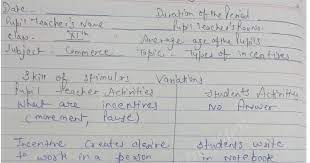 Date Duration of the Period
Pupil-Teacher's Name Pupil Teacher's Rollno.
Class XIth Average age of the Pupils
Subject Commerce Topic: Types of incentives
Skill of Stimulus Variations
Pupil Teacher Activities Students Activities
What are incentives No Answer
(movement, Pause)
Incentive creates desire Students write
to work in a person in Notebook